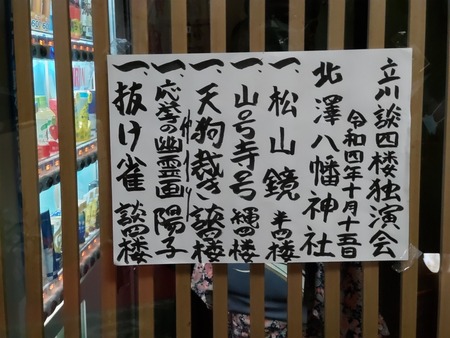 立川談四楼独演会
令和四年十月十五日
北澤八幡神社
一、松山鏡 半四楼
一、山号寺号 縄四楼
一、天狗裁き 談四楼
仲入り
一、応挙の幽霊画 陽子
一、抜け雀 談四楼